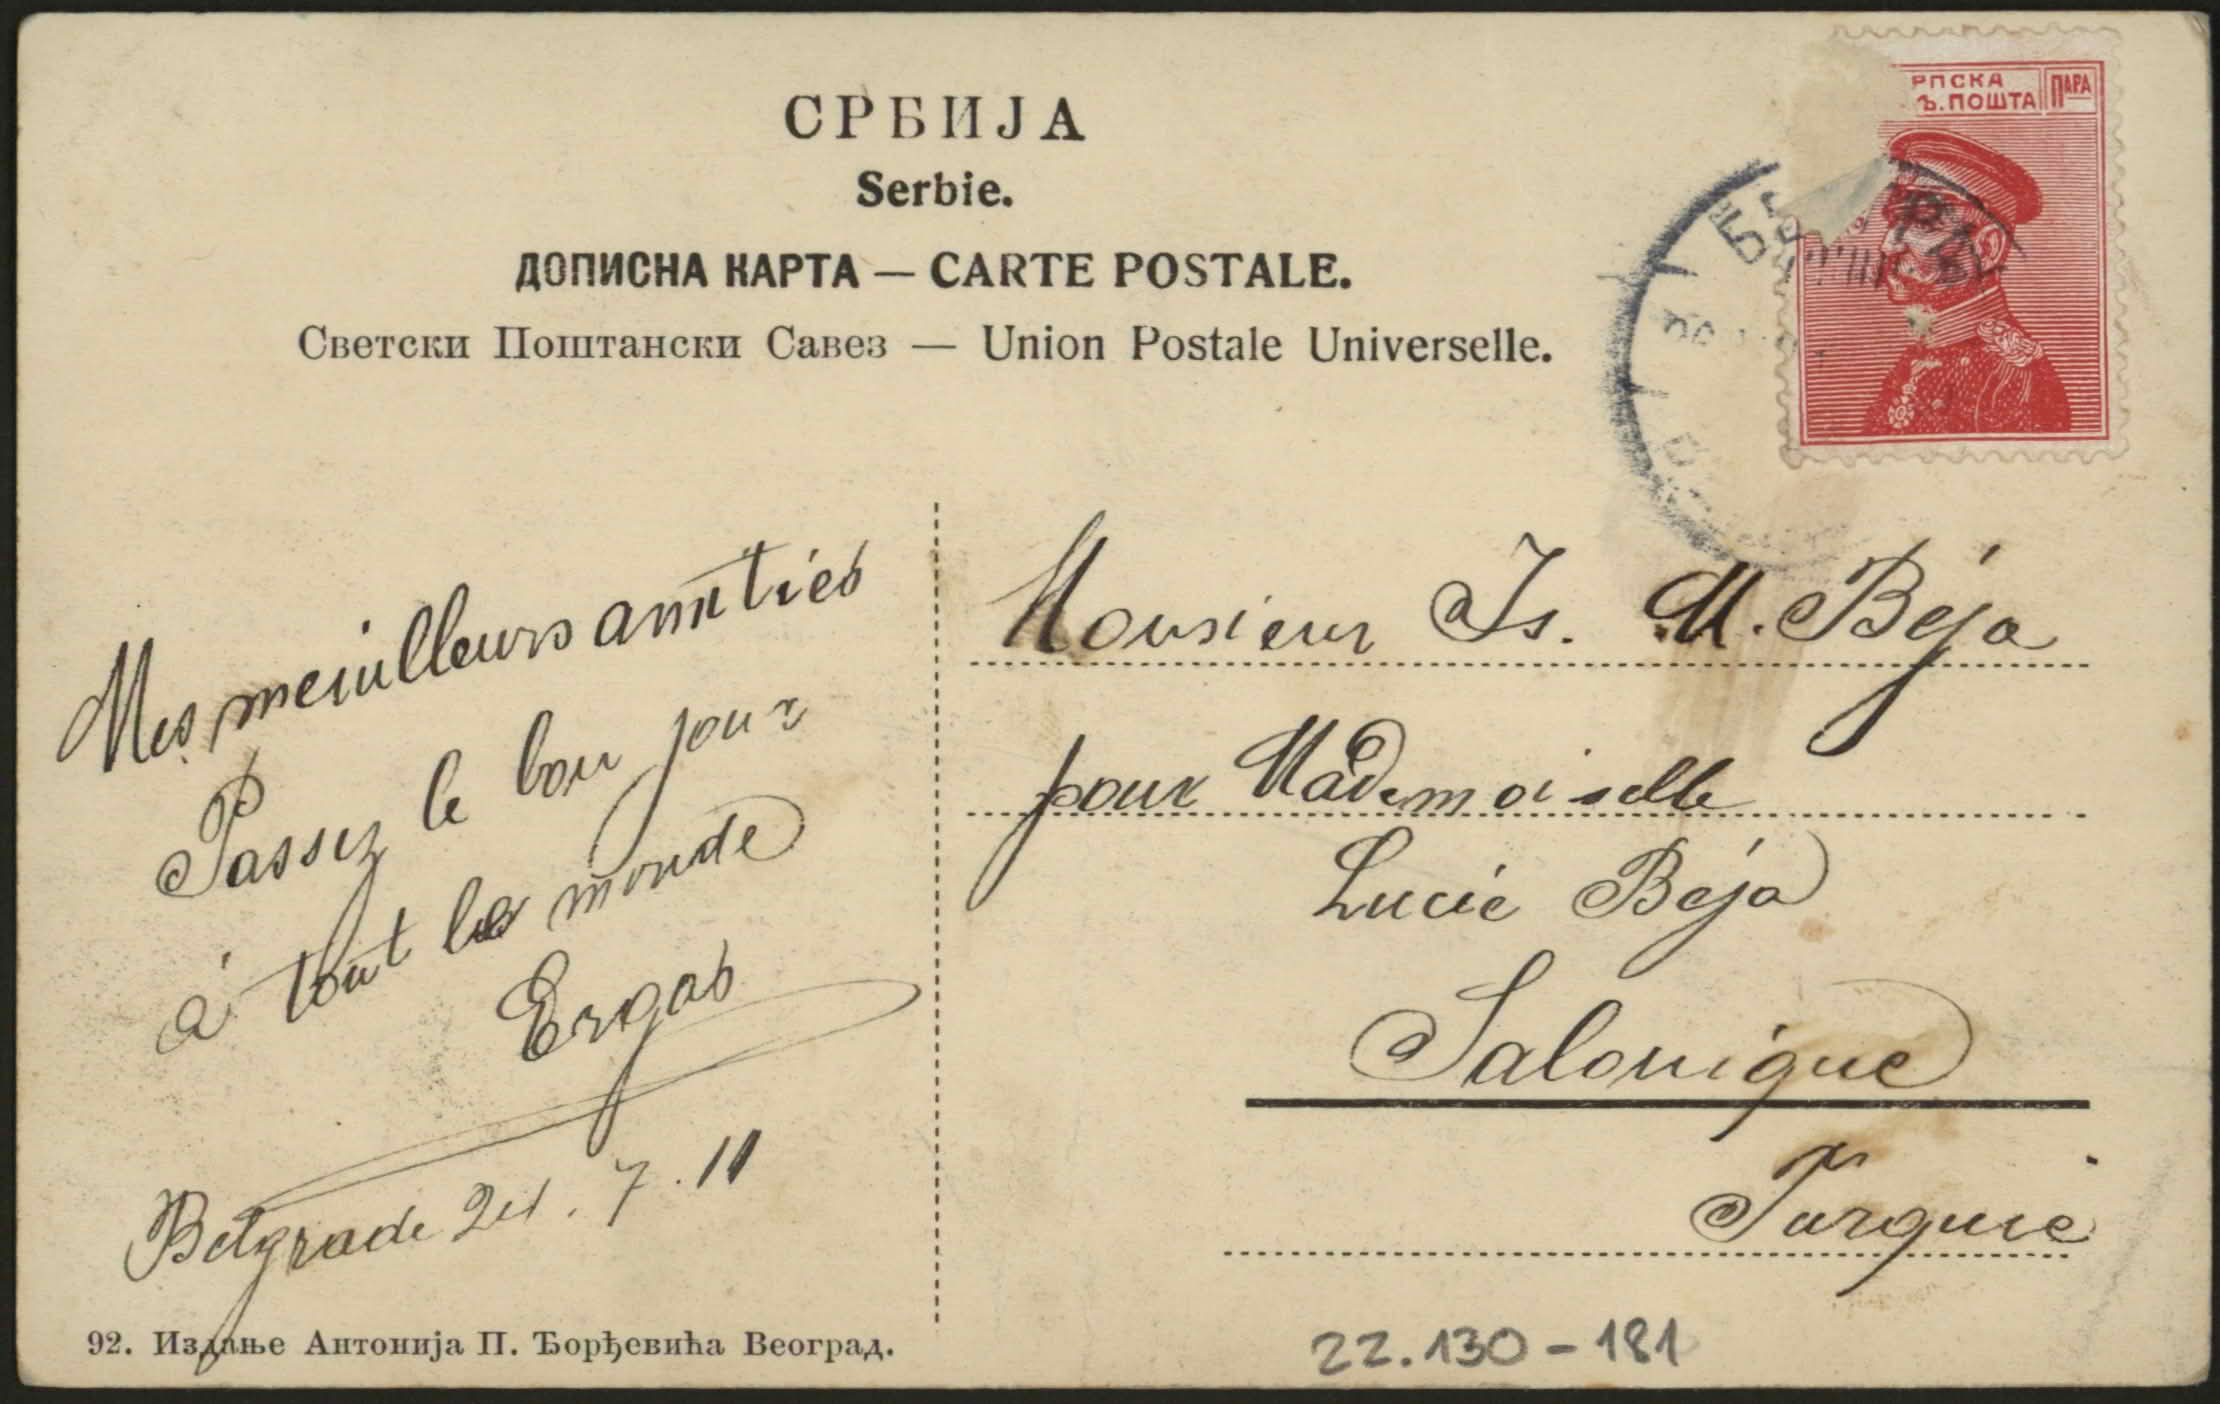 СРБИЈА
Serbie.
ДОПИСНА КАРТА — CARTE POSTALE.
Светски Поштански Савез — Union Postale Universelle.
РПСКА
Ъ. ПОШТА
ПАРА
Mes meiulleurs amitiés
Passez le bonjour
à tout les monde
Ergas
Belgrade 24.7.11
Monsieur Is. M. Béja
pour Mademoiselle
Lucie Béja
Salonique
Turquie
92. Издање Антонија П. Ђорђевића Београд.
22.130-181